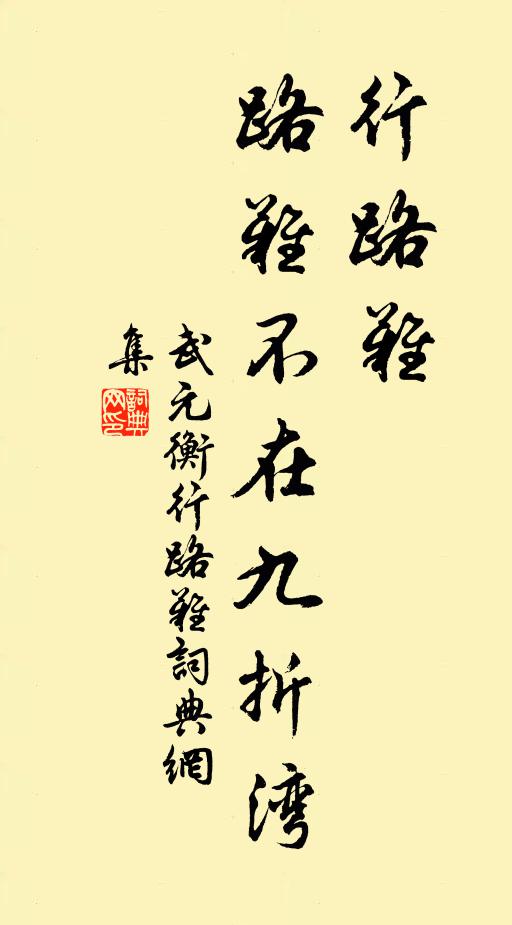 行路難
路難不在九折湾
武元衡行路難詞典網
集
詞典網印